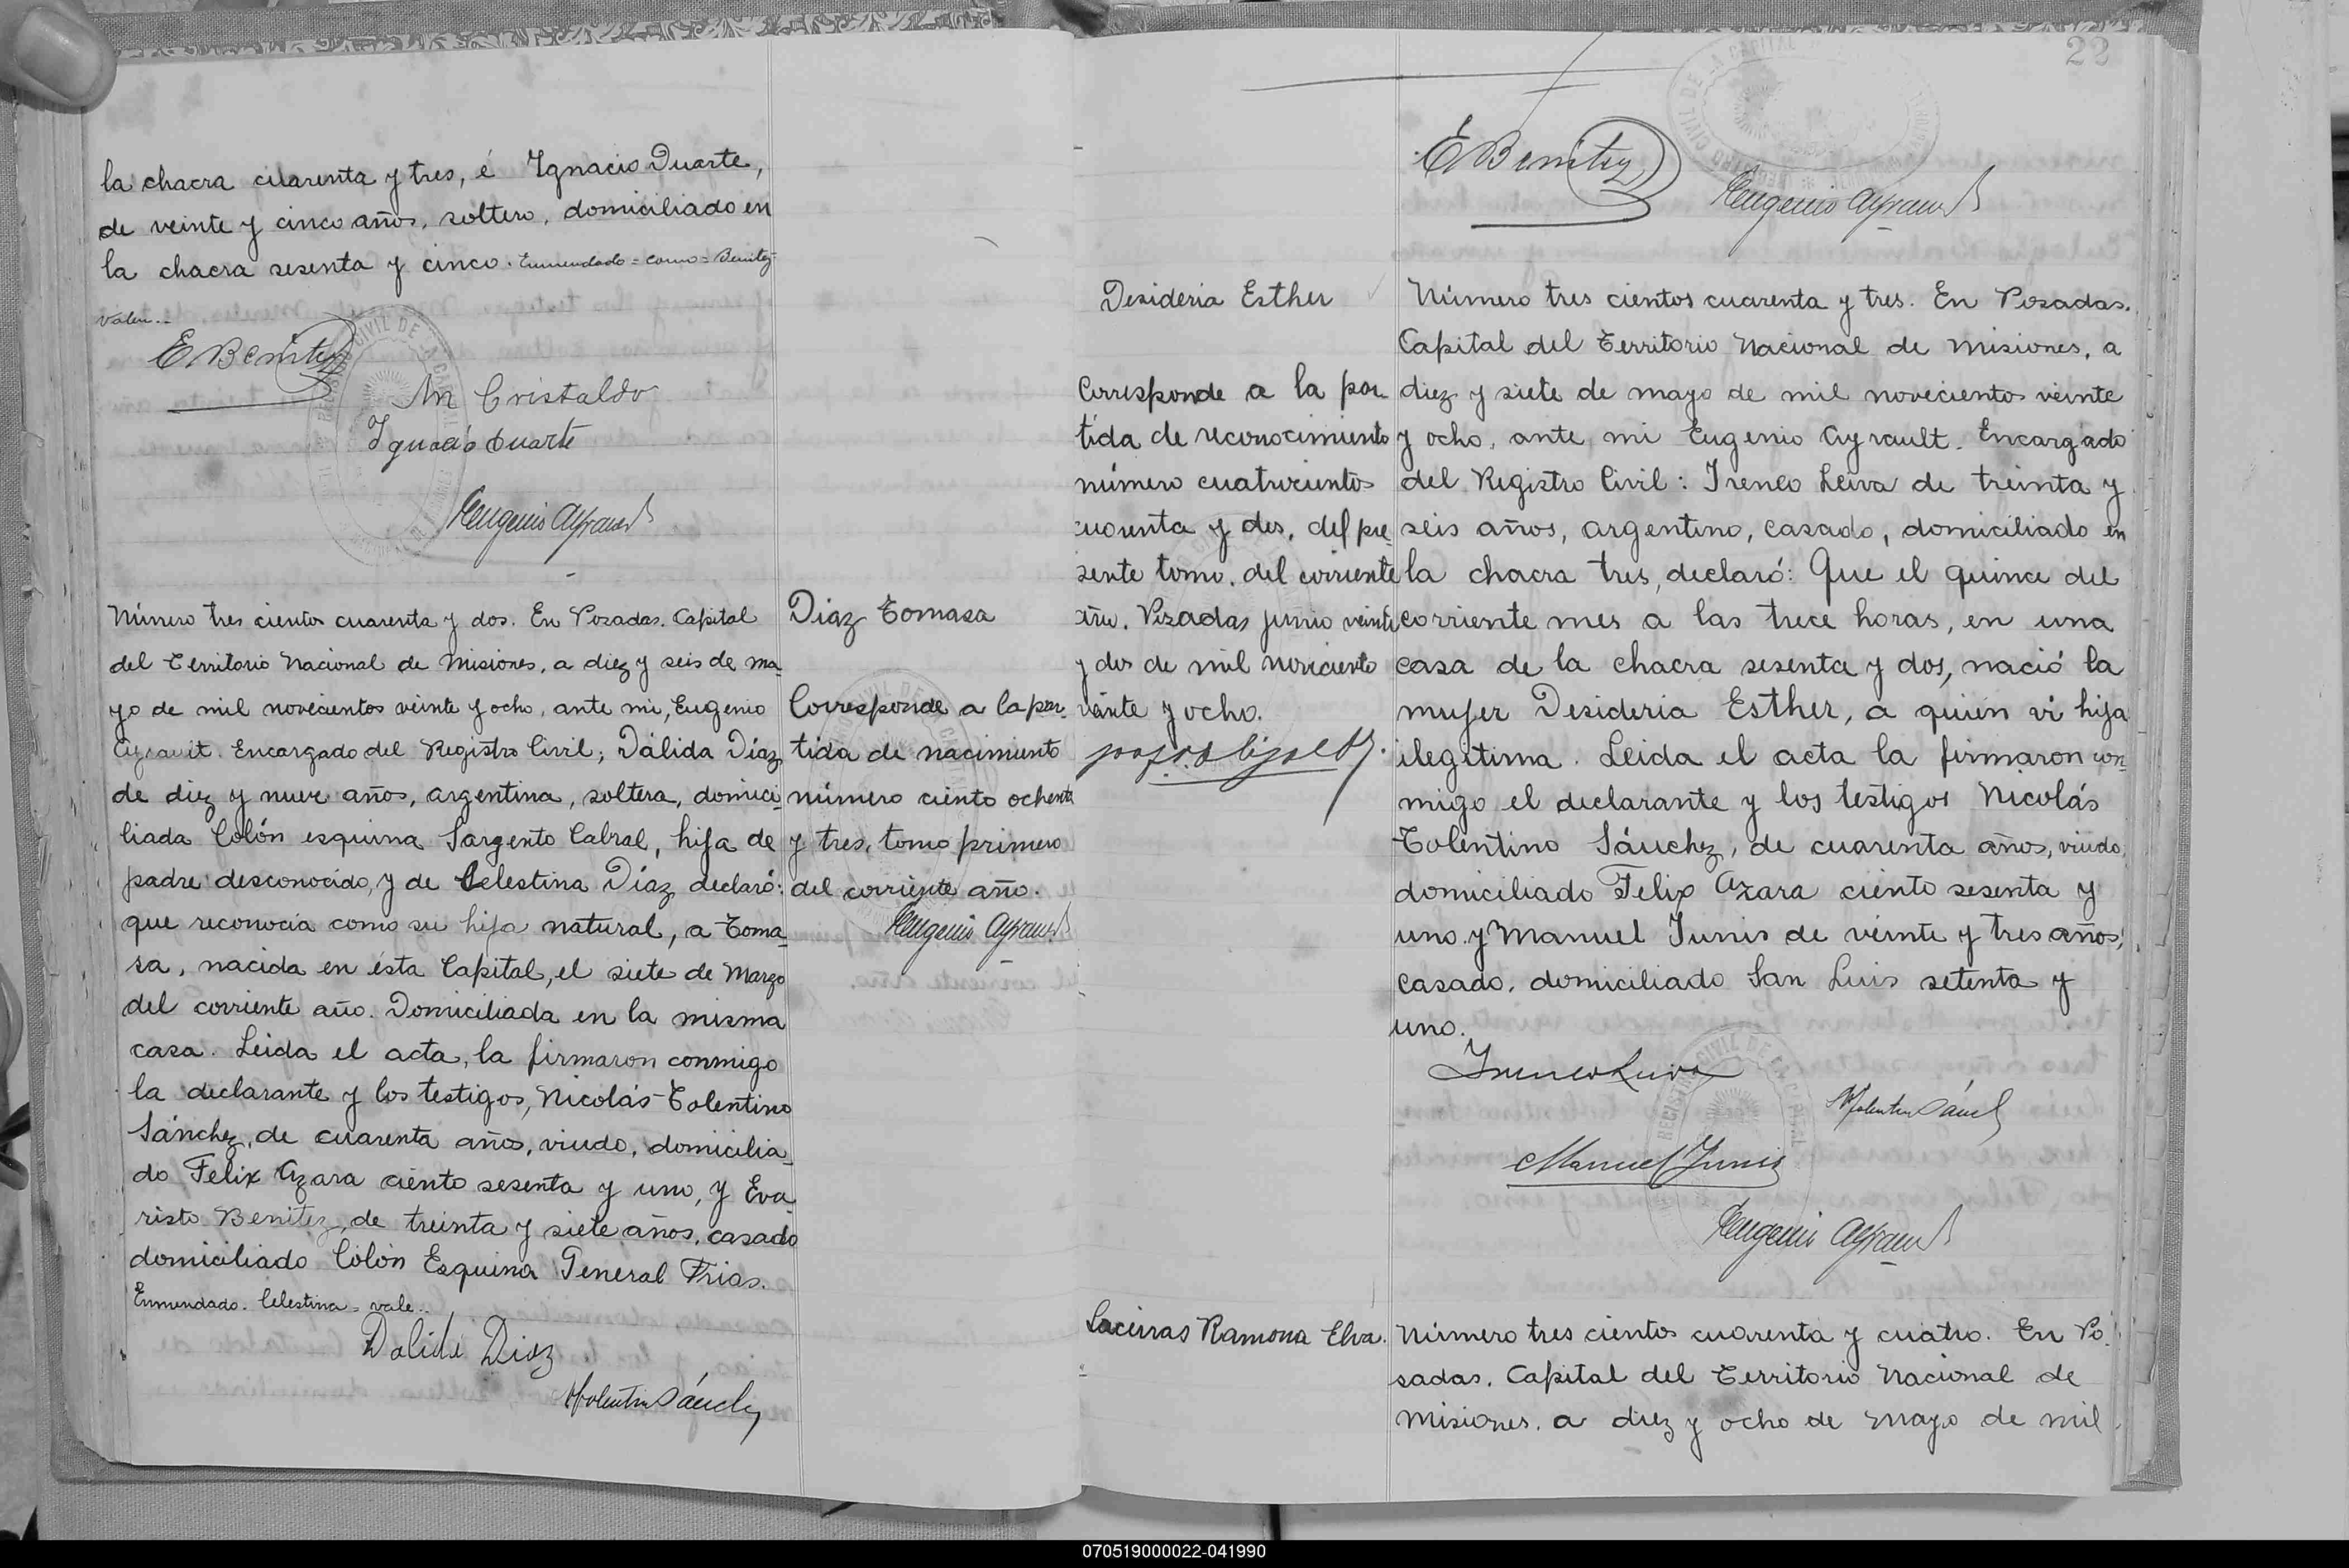 la chacra cuarenta y tres, é Ygnacio Duarte,
de veinte y cinco años, soltero, domiciliado en
la chacra sesenta y cinco. Enmendado = como = Benitez
valen..
E Benitez
M Cristaldo
Ygnacio Duarte
Eugenio Ayrault
Número tres cientos cuarenta y dos. En Posadas. Capital
del Territorio Nacional de Misiones, a diez y seis de ma-
yo de mil novecientos veinte y ocho, ante mi, Eugenio
Ayrault. Encargado del Registro Civil; Dálida Díaz
de diez y nueve años, argentina, soltera, domici-
liada Colón esquina Sargento Cabral, hija de
padre desconocido, y de Celestina Díaz declaró:
que reconocía como su hija natural, a Toma-
sa, nacida en ésta Capital, el siete de Marzo
del corriente año. Domiciliada en la misma
casa. Leida el acta, la firmaron conmigo
la declarante y los testigos, Nicolás Tolentino
Sánchez, de cuarenta años, viudo, domicilia-
do Felix Azara ciento sesenta y uno, y Eva-
risto Benitez, de treinta y siete años, casado
domiciliado Colón Esquina General Frias.
Enmendado. Celestina = vale..
Dalida Diaz
NTolentino Sánchez
Diaz Tomasa
Corresponde a la par-
tida de nacimiento
número ciento ochenta
y tres, tomo primero
del corriente año.
Eugenio Ayrault
22
E Benitez
Eugenio Ayrault
Desideria Esther
Corresponde a la par-
tida de reconocimiento
número cuatrocientos
cuarenta y dos, del pre-
sente tomo. del corriente
año. Posadas junio veinte
y dos de mil noveciento
veinte y ocho.
Número tres cientos cuarenta y tres. En Posadas.
Capital del Territorio Nacional de Misiones, a
diez y siete de mayo de mil noveciento veinte
y ocho, ante mi Eugenio Ayrault. Encargado
del Registro Civil: Ireneo Leiva de treinta y
seis años, argentino, casado, domiciliado en
la chacra tres, declaró: Que el quince del
corriente mes a las trece horas, en una
casa de la chacra sesenta y dos, nació la
mujer Desideria Esther, a quien vi hija
ilegitima. Leida el acta la firmaron con-
migo el declarante y los testigos Nicolás
Tolentino Sánchez, de cuarenta años, viudo,
domiciliado Felix Azara ciento sesenta y
uno y Manuel Junis de veinte y tres años,
casado, domiciliado San Luis setenta y
uno.
Ireneo Leiva
NTolentino Sánchez
Manuel Junis
Eugenio Ayrault
Ramona Elva.
Número tres cientos cuarenta y cuatro. En Po-
sadas. Capital del Territorio Nacional de
Misiones. a diez y ocho de mayo de mil
070519000022-041990